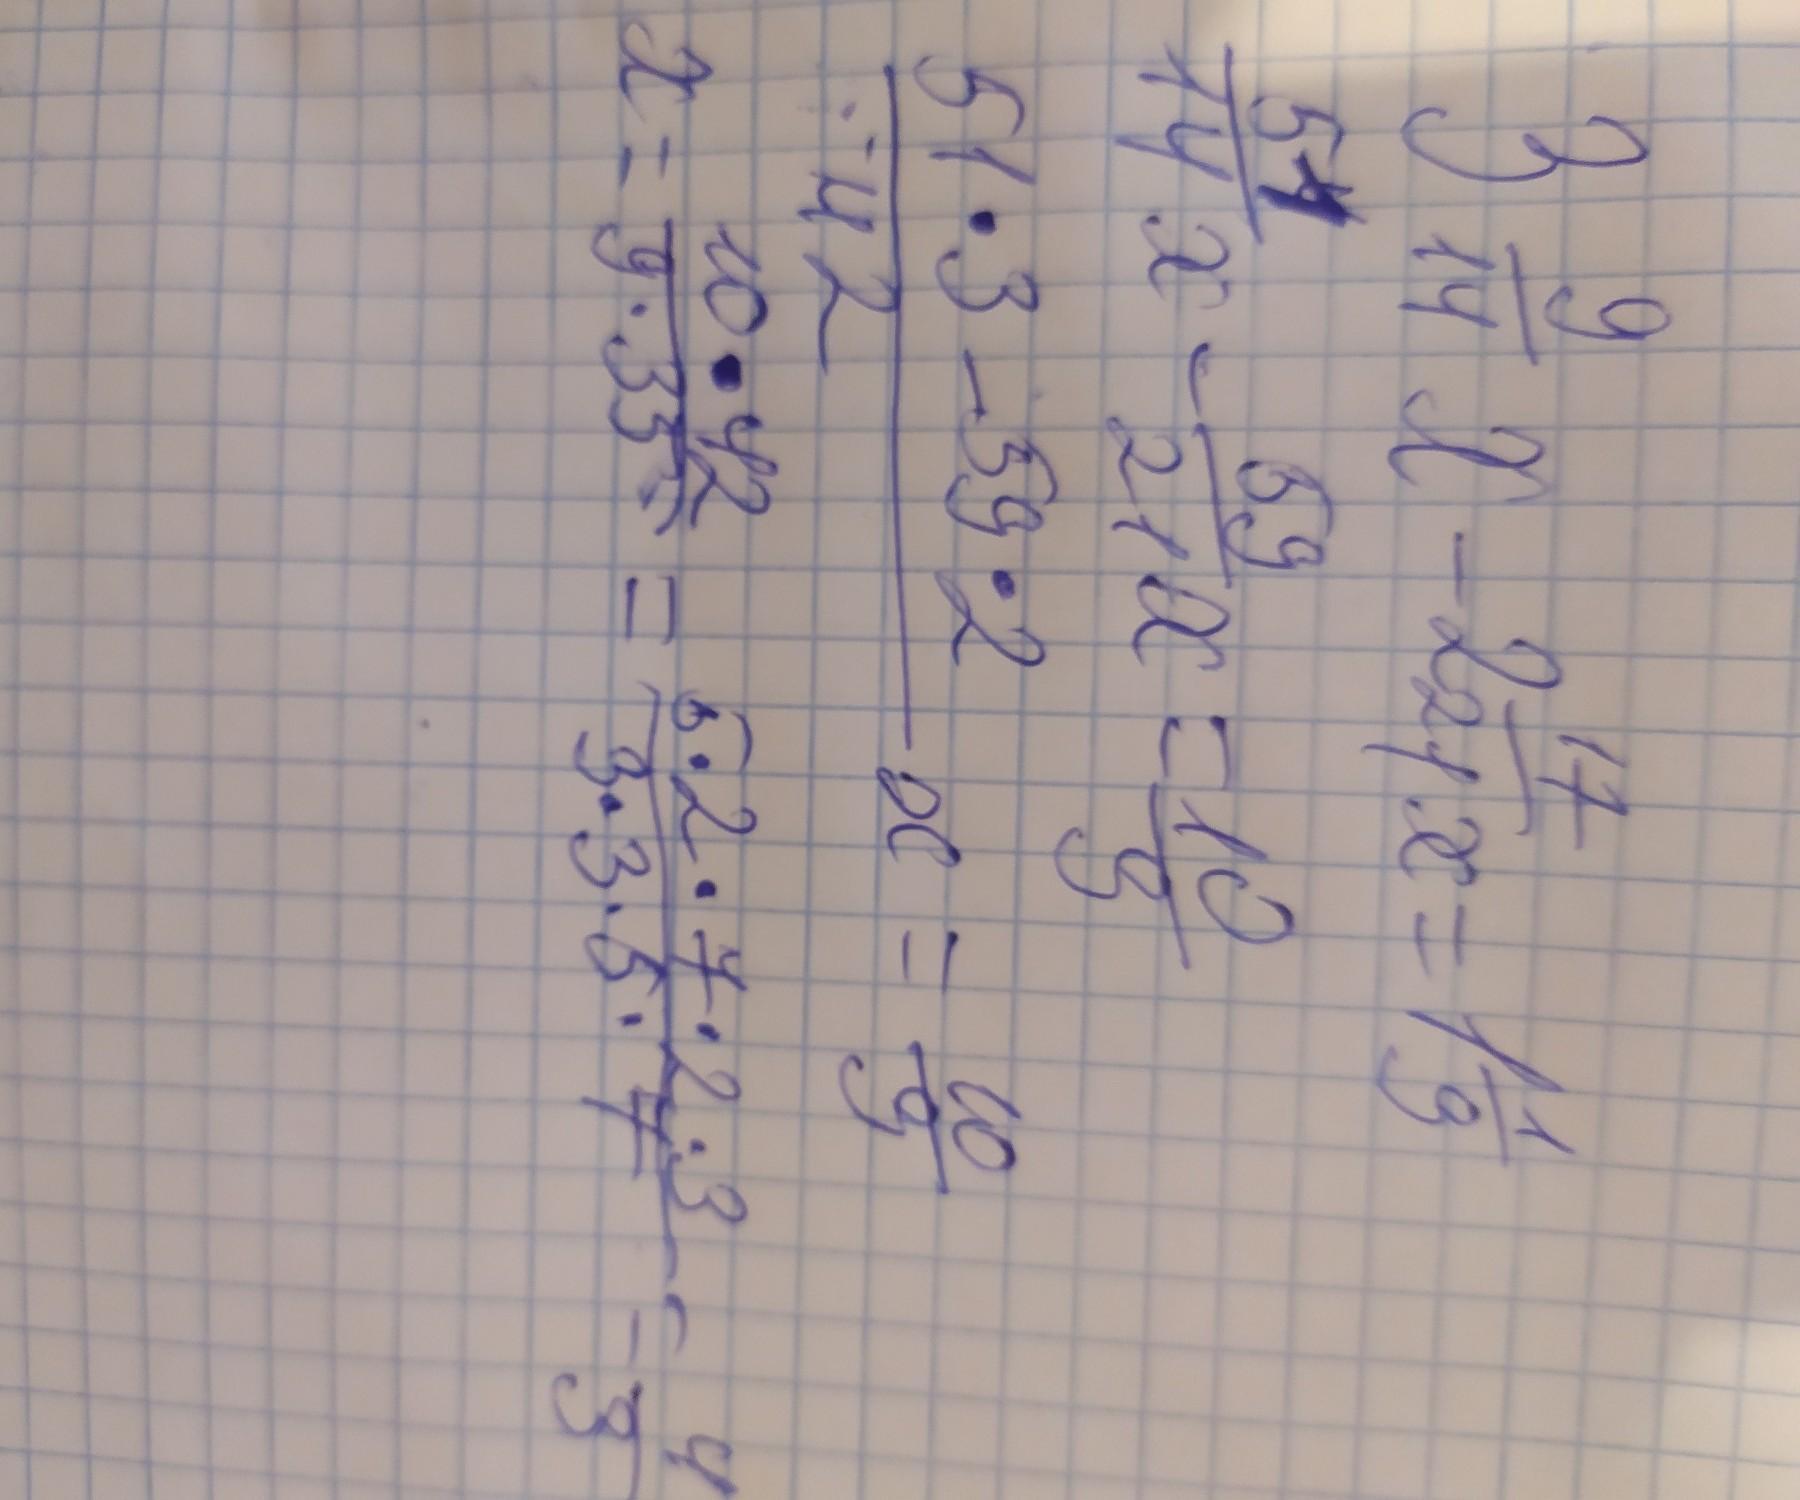 3 9/14 x - 2 17/21 x = 1 1/9
51/14 x - 59/21 x = 10/9
(51 · 3 - 59 · 2)/42 x = 10/9
x = (10 · 42)/(9 · 35) = (5 · 2 · 7 · 2 · 3)/(3 · 3 · 5 · 7) = 4/3